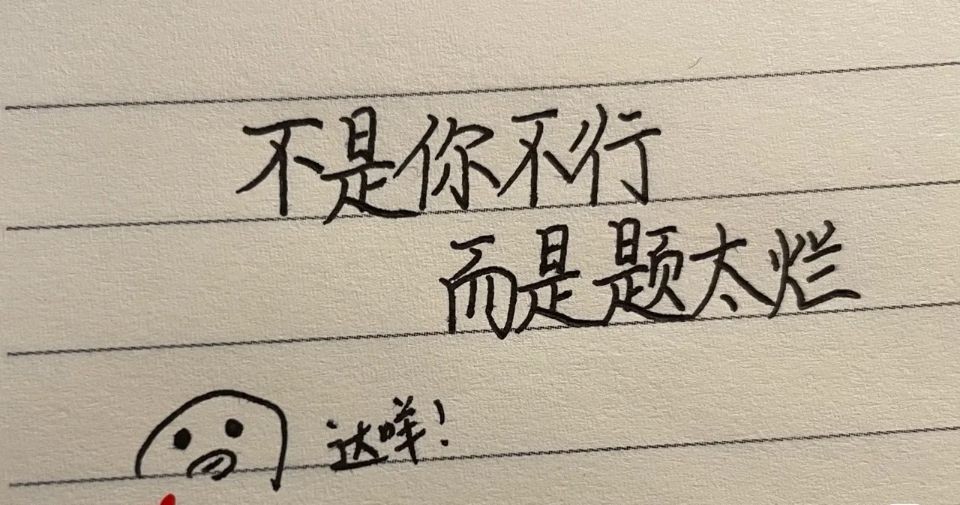 不是你不行
而是题太烂
达咩!